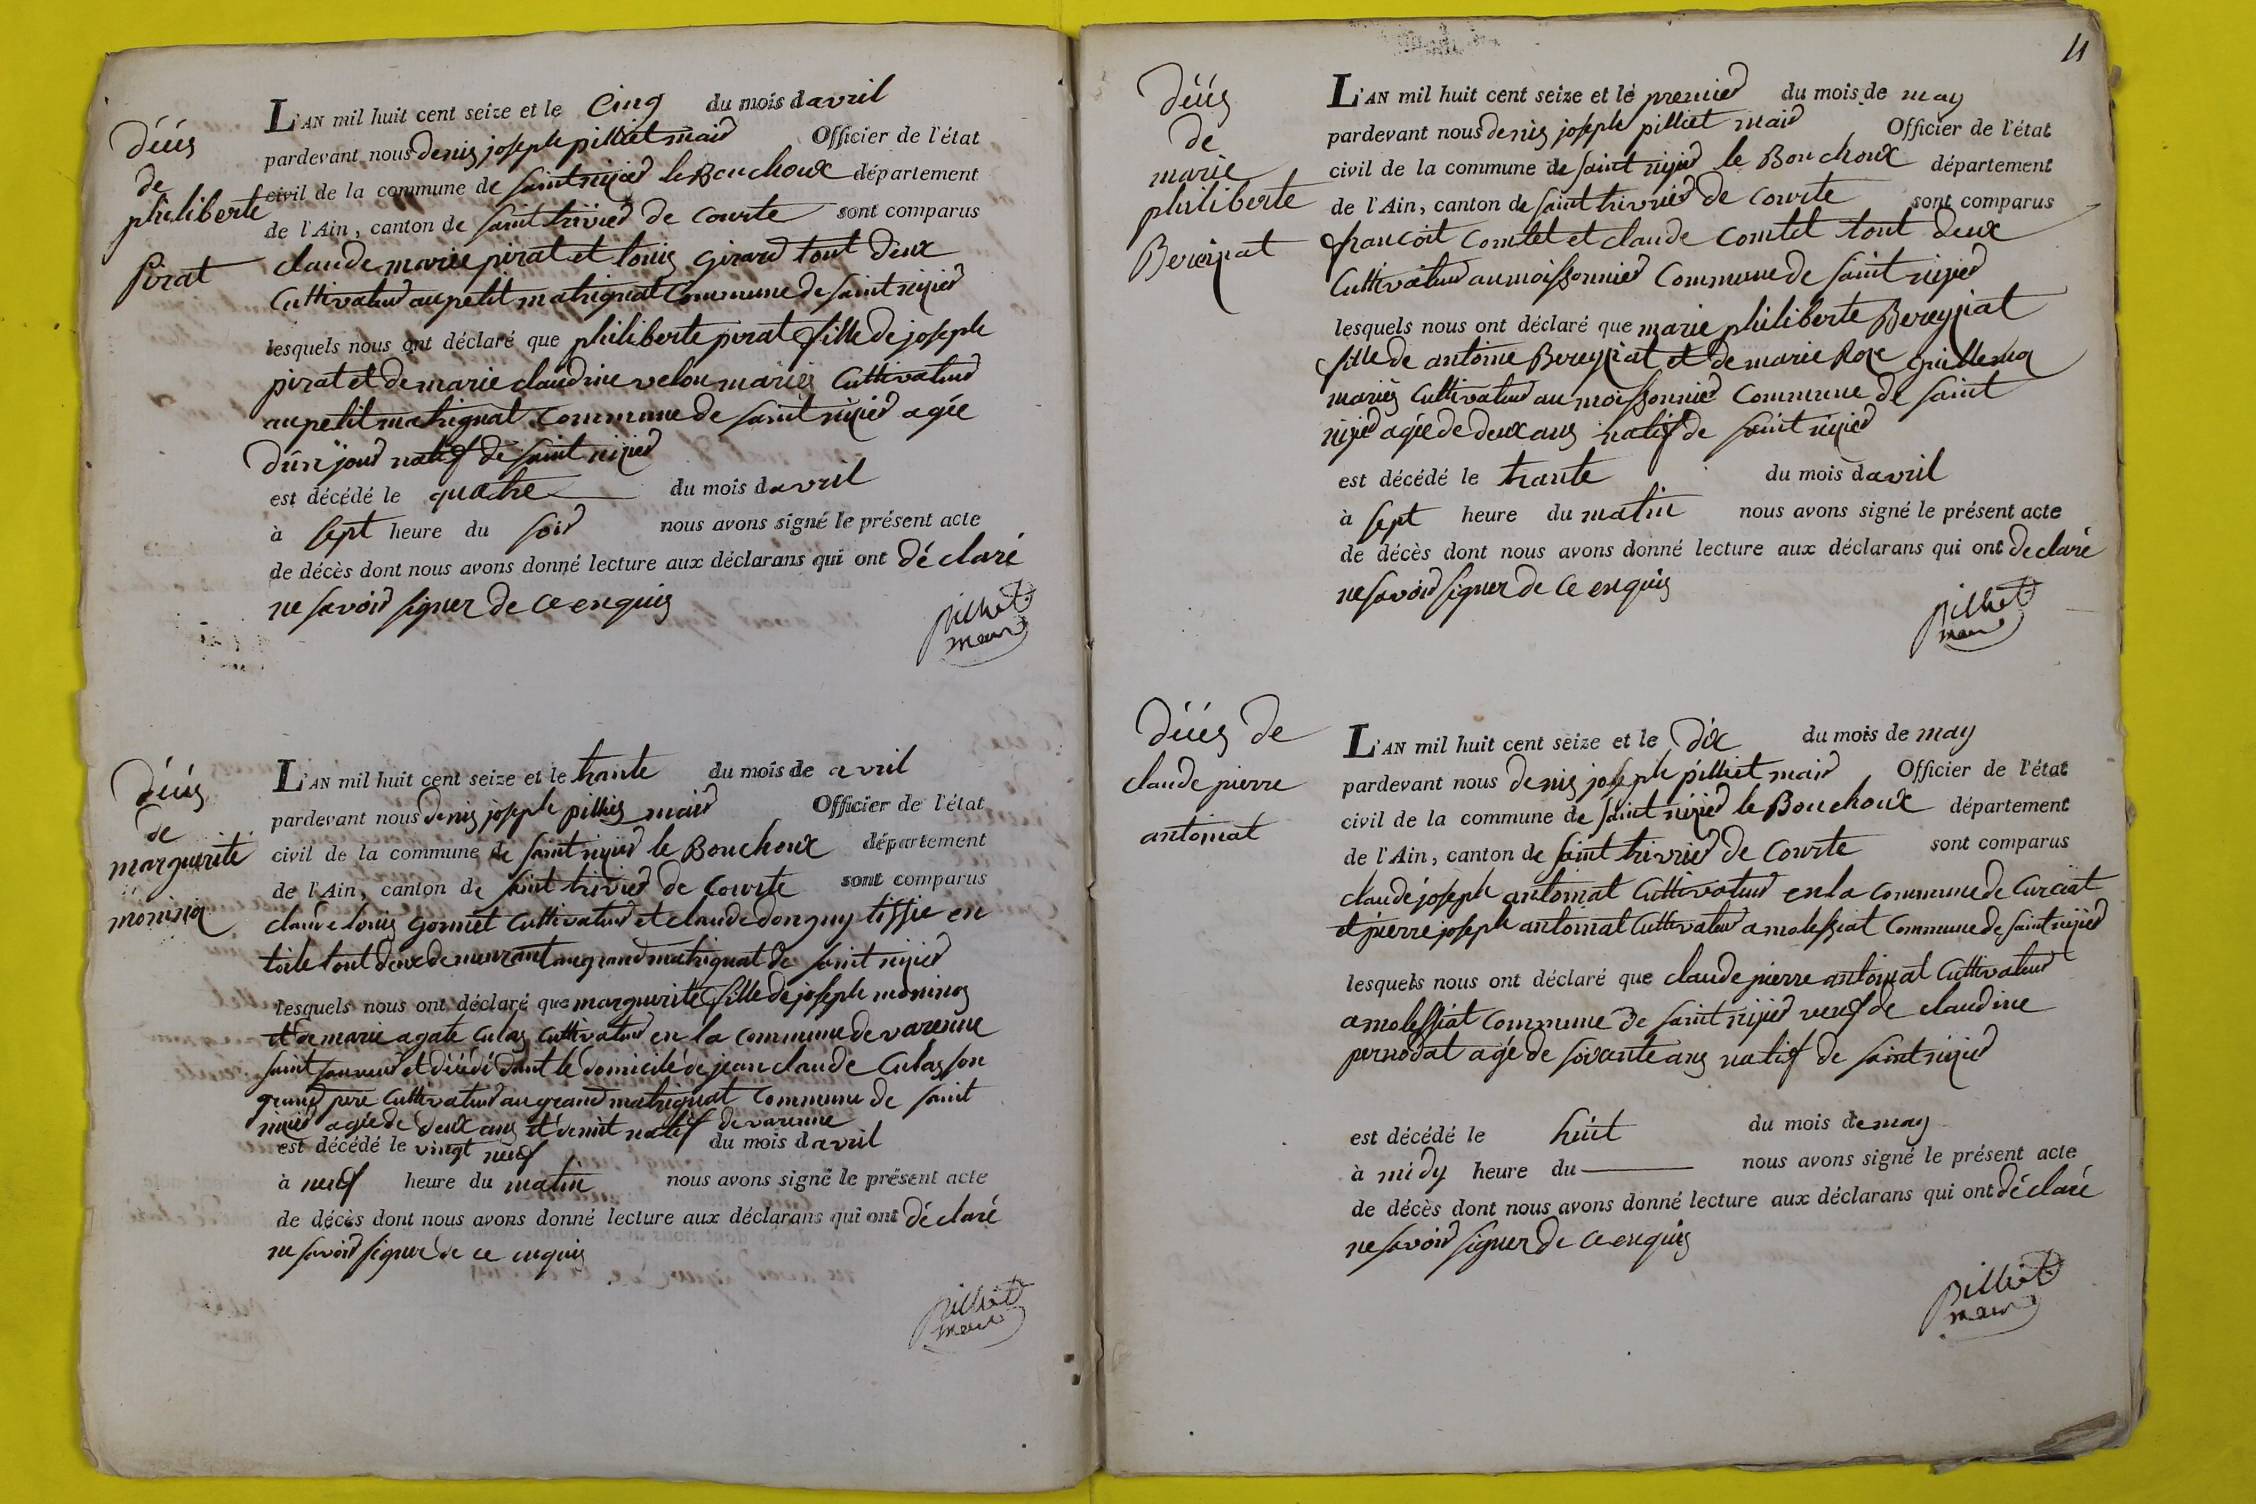 décès
de
philiberte
pirat
L'AN mil huit cent seize et le cinq du mois d avril
pardevant nous denis joseph pilliet maire Officier de l'état
civil de la commune de saint nizier le Bouchoux département
de l'Ain, canton de saint trivier de courte sont comparus
claude marie pirat et louis girard tout deux
cultivateur au petit matrignat commune de saint nizier
lesquels nous ont déclaré que philiberte pirat fille de joseph
pirat et de marie claudine velon mariés cultivateur
au petit matrignat commune de saint nizier agée
d'un jour natif de saint nizier
est décédé le quatre du mois d avril
à sept heure du soir nous avons signé le présent acte
de décès dont nous avons donné lecture aux déclarans qui ont déclaré
ne savoir signer de ce enquis
pilliet
maire
décès
de
marguerite
moninq
L'AN mil huit cent seize et le trante du mois de avril
pardevant nous denis joseph pilliet maire Officier de l'état
civil de la commune de saint nizier le Bouchoux département
de l'Ain, canton de saint trivier de courte sont comparus
claude louis gonnet cultivateur et claude donguy tissie en
toile tout deux demeurant au grand matrignat de saint nizier
lesquels nous ont déclaré que marguerite fille de joseph moninq
et de marie agate culas cultivateur en la commune de varenne
saint sauveur et décédé dant le domicile de jean claude culas son
grand pere cultivateur au grand matrignat commune de saint
nizier agée de deux ans et demit natif de varenne
est décédé le vingt neuf du mois d avril
à neuf heure du matin nous avons signé le présent acte
de décès dont nous avons donné lecture aux déclarans qui ont déclaré
ne savoir signer de ce enquis
pilliet
maire
11
décès
de
marie
philiberte
Bereyziat
L'AN mil huit cent seize et le premier du mois de may
pardevant nous denis joseph pilliet maire Officier de l'état
civil de la commune de saint nizier le Bouchoux département
de l'Ain, canton de saint trivier de courte sont comparus
francoit comtet et claude comtet tout deux
cultivateur au moissonnier commune de saint nizier
lesquels nous ont déclaré que marie philiberte Bereyziat
fille de antoine Bereyziat et de marie Roze guillemin
mariés cultivateur au moissonnier commune de saint
nizier agée de deux ans natif de saint nizier
est décédé le trante du mois d avril
à sept heure du matin nous avons signé le présent acte
de décès dont nous avons donné lecture aux déclarans qui ont déclaré
ne savoir signer de ce enquis
pilliet
maire
décès de
claude pierre
antoinat
L'AN mil huit cent seize et le dix du mois de may
pardevant nous denis joseph pilliet maire Officier de l'état
civil de la commune de saint nizier le Bouchoux département
de l'Ain, canton de saint trivier de courte sont comparus
claude joseph antoinat cultivateur en la commune de curciat
et pierre joseph antoinat cultivateur a molessiat commune de saint nizier
lesquels nous ont déclaré que claude pierre antoinat cultivateur
a molessiat commune de saint nizier veuf de claudine
pernodat agé de soixante ans natif de saint nizier
est décédé le huit du mois de may
à midy heure du nous avons signé le présent acte
de décès dont nous avons donné lecture aux déclarans qui ont déclaré
ne savoir signer de ce enquis
pilliet
maire